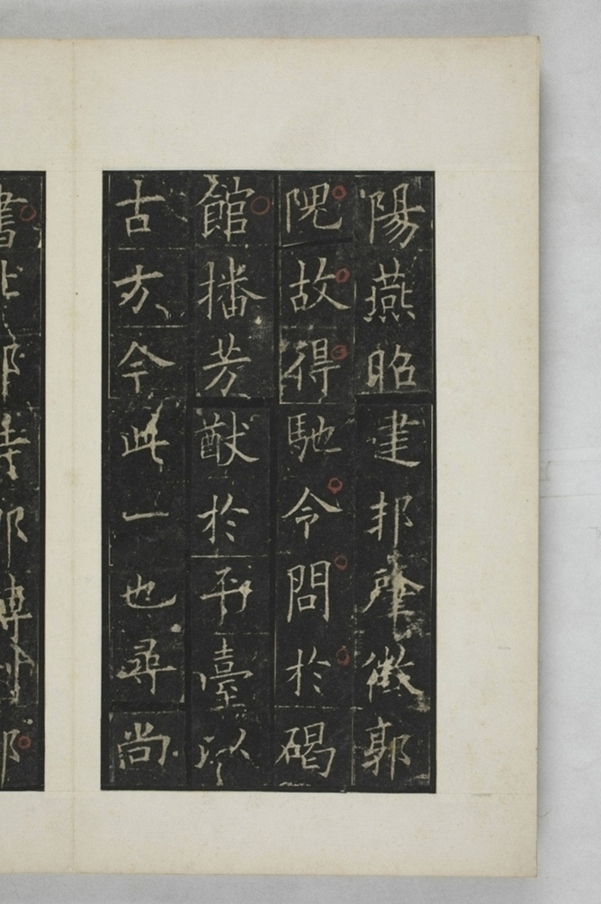 陽燕昭建邦肇徵郭
隗故得馳令問於碣
館播芳猷於平臺以
古方今此一也尋尚
書